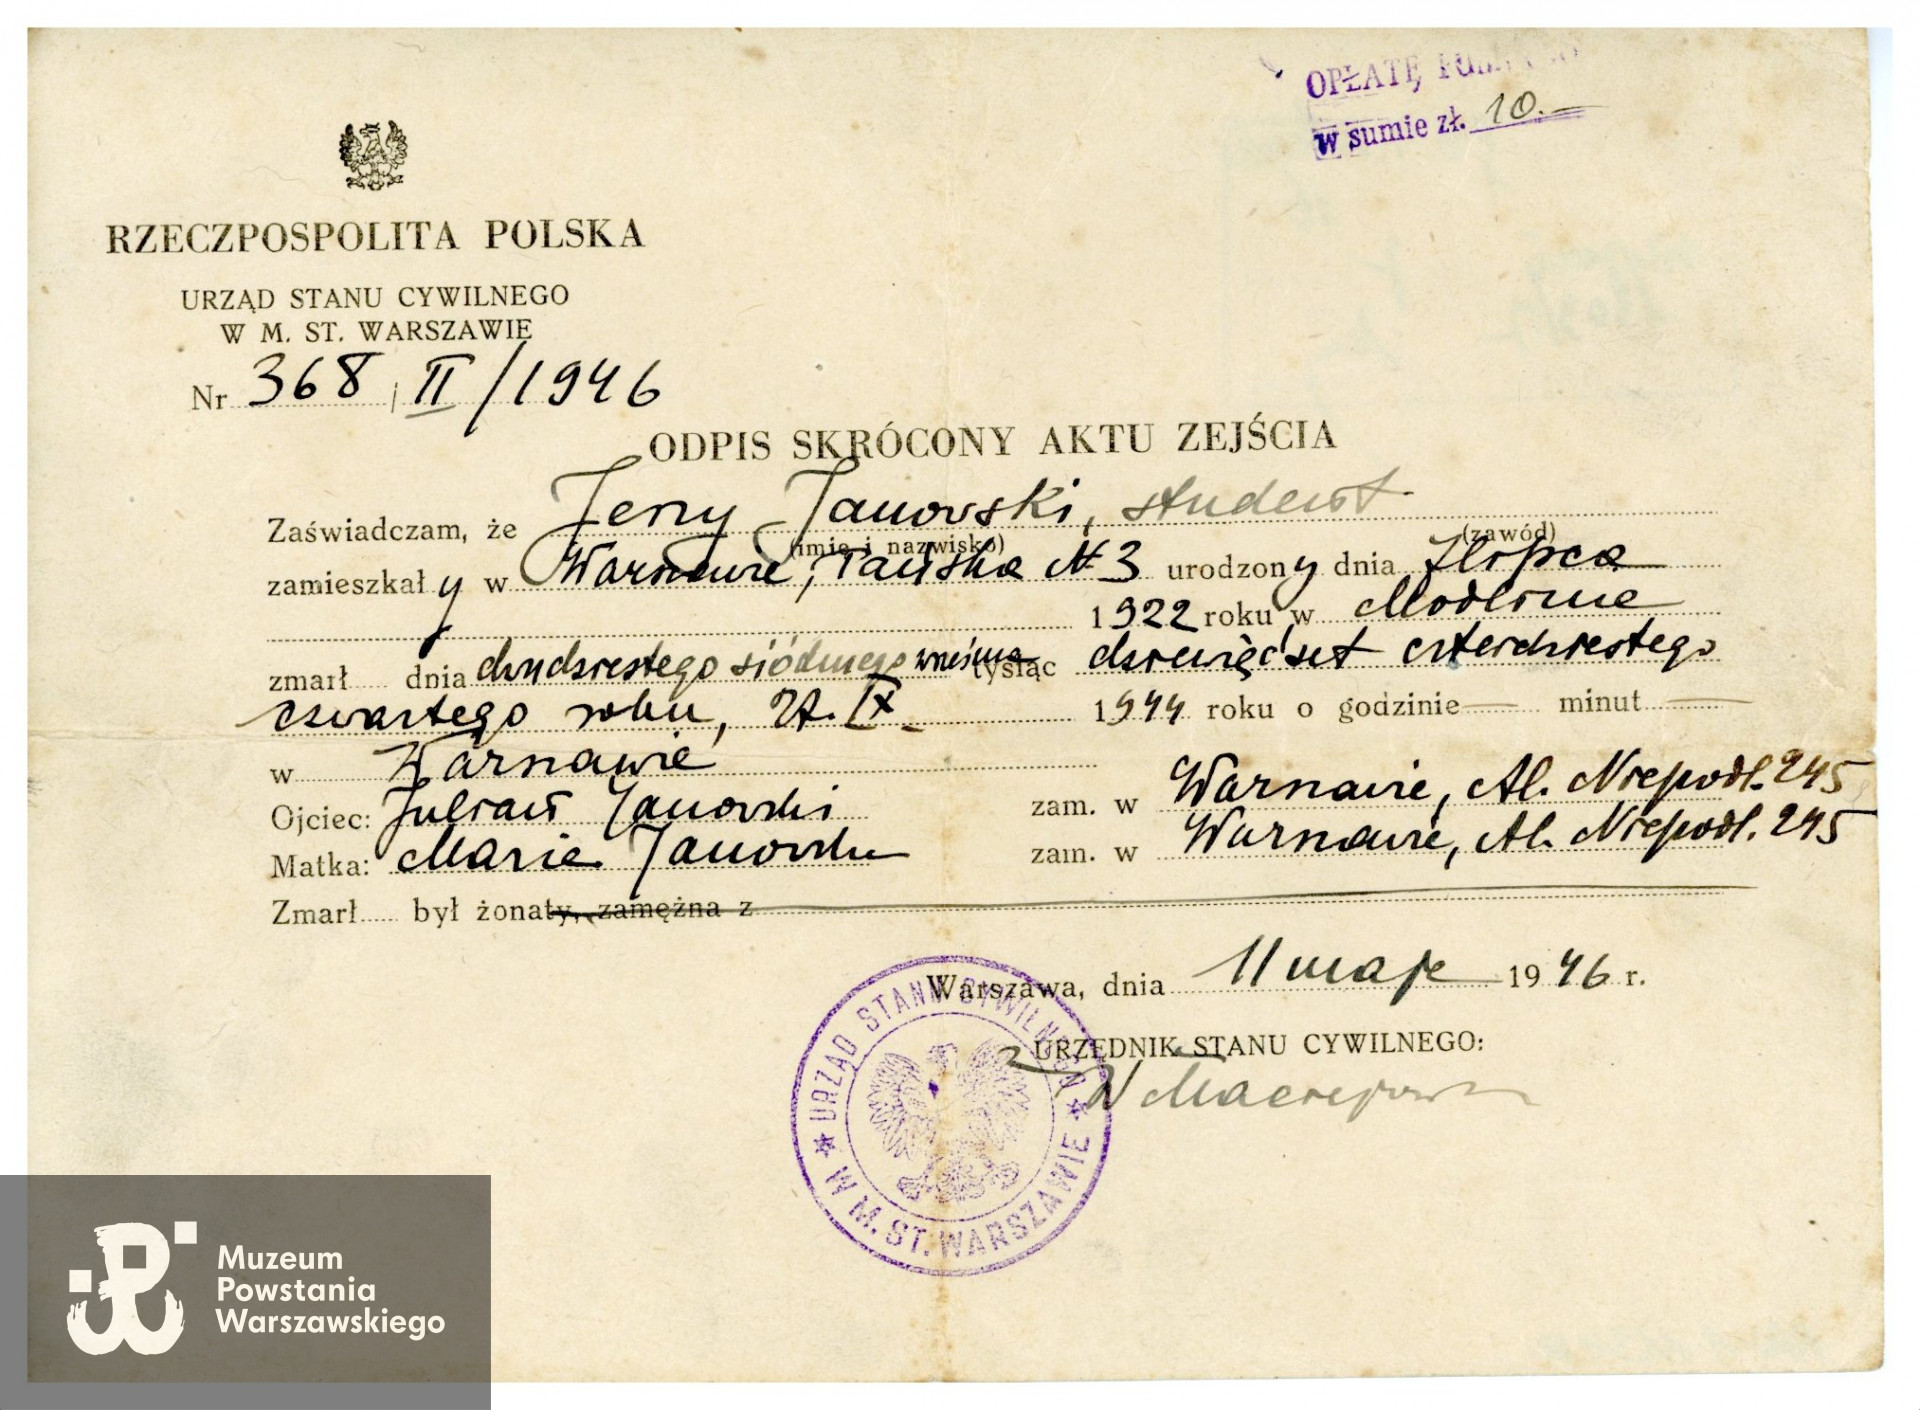 OPŁATĘ
w sumie zł. 10.—
RZECZPOSPOLITA POLSKA
URZĄD STANU CYWILNEGO
W M. ST. WARSZAWIE
Nr 368/II/1946
ODPIS SKRÓCONY AKTU ZEJŚCIA
Zaświadczam, że Jerzy Janowski, student
(imię i nazwisko) (zawód)
zamieszkały w Warszawie, № 3 urodzony dnia lipca
1922 roku w Modlinie
zmarł dnia dwudziestego siódmego września tysiąc dziewięćset czterdziestego
czwartego roku, 27. IX. 1944 roku o godzinie — minut —
w Warszawie
Ojciec: Julian Janowski zam. w Warszawie, Al. Niepodl. 245
Matka: Maria Janowska zam. w Warszawie, Al. Niepodl. 245
Zmarł był żonaty, zamężna z
Warszawa, dnia 11 maja 1946 r.
URZĘDNIK STANU CYWILNEGO:
URZĄD STANU CYWILNEGO
W M. ST. WARSZAWIE
Muzeum
Powstania
Warszawskiego